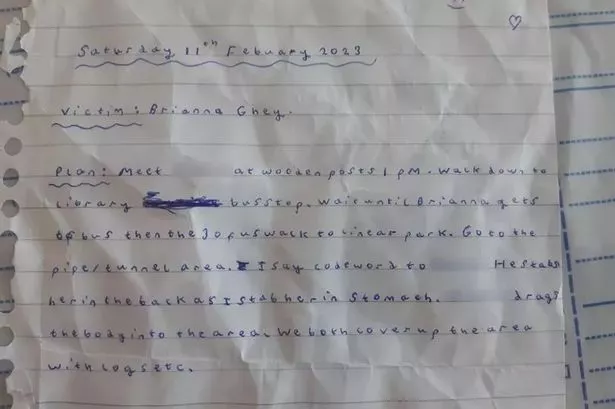 Saturday 11th Febuary 2023
Victim: Brianna Ghey.
Plan: Meet at wooden posts 1 pm. Walk down to
library bus stop. Wait until Brianna gets
off bus then the 3 of us walk to linear park. Go to the
pipe/tunnel area. I say codeword to He stabs
her in the back as I stab her in stomach. drags
the body into the area. We both cover up the area
with logs etc.